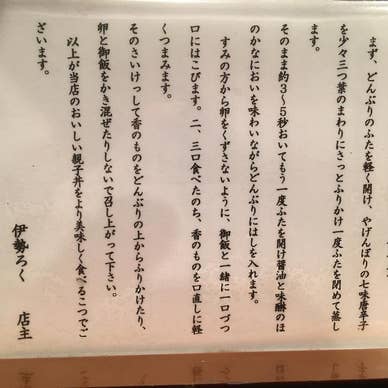 まず、どんぶりのふたを軽く開け、やげんぼりの七味唐辛子
を少々三つ葉のまわりにさっとふりかけ一度ふたを閉めて蒸し
ます。
そのまま約3〜5秒おいてもう一度ふたを開け醤油と味醂のほ
のかなにおいを味わいながらどんぶりにはしを入れます。
すみの方から卵をくずさないように、御飯と一緒に一口づつ
口にはこびます。二、三口食べたのち、香のものを口直しに軽
くつまみます。
そのさいけっして香のものをどんぶりの上からふりかけたり、
卵と御飯をかき混ぜたりしないで召し上がって下さい。
以上が当店のおいしい親子丼をより美味しく食べるこつでご
ざいます。
伊勢ろく 店主